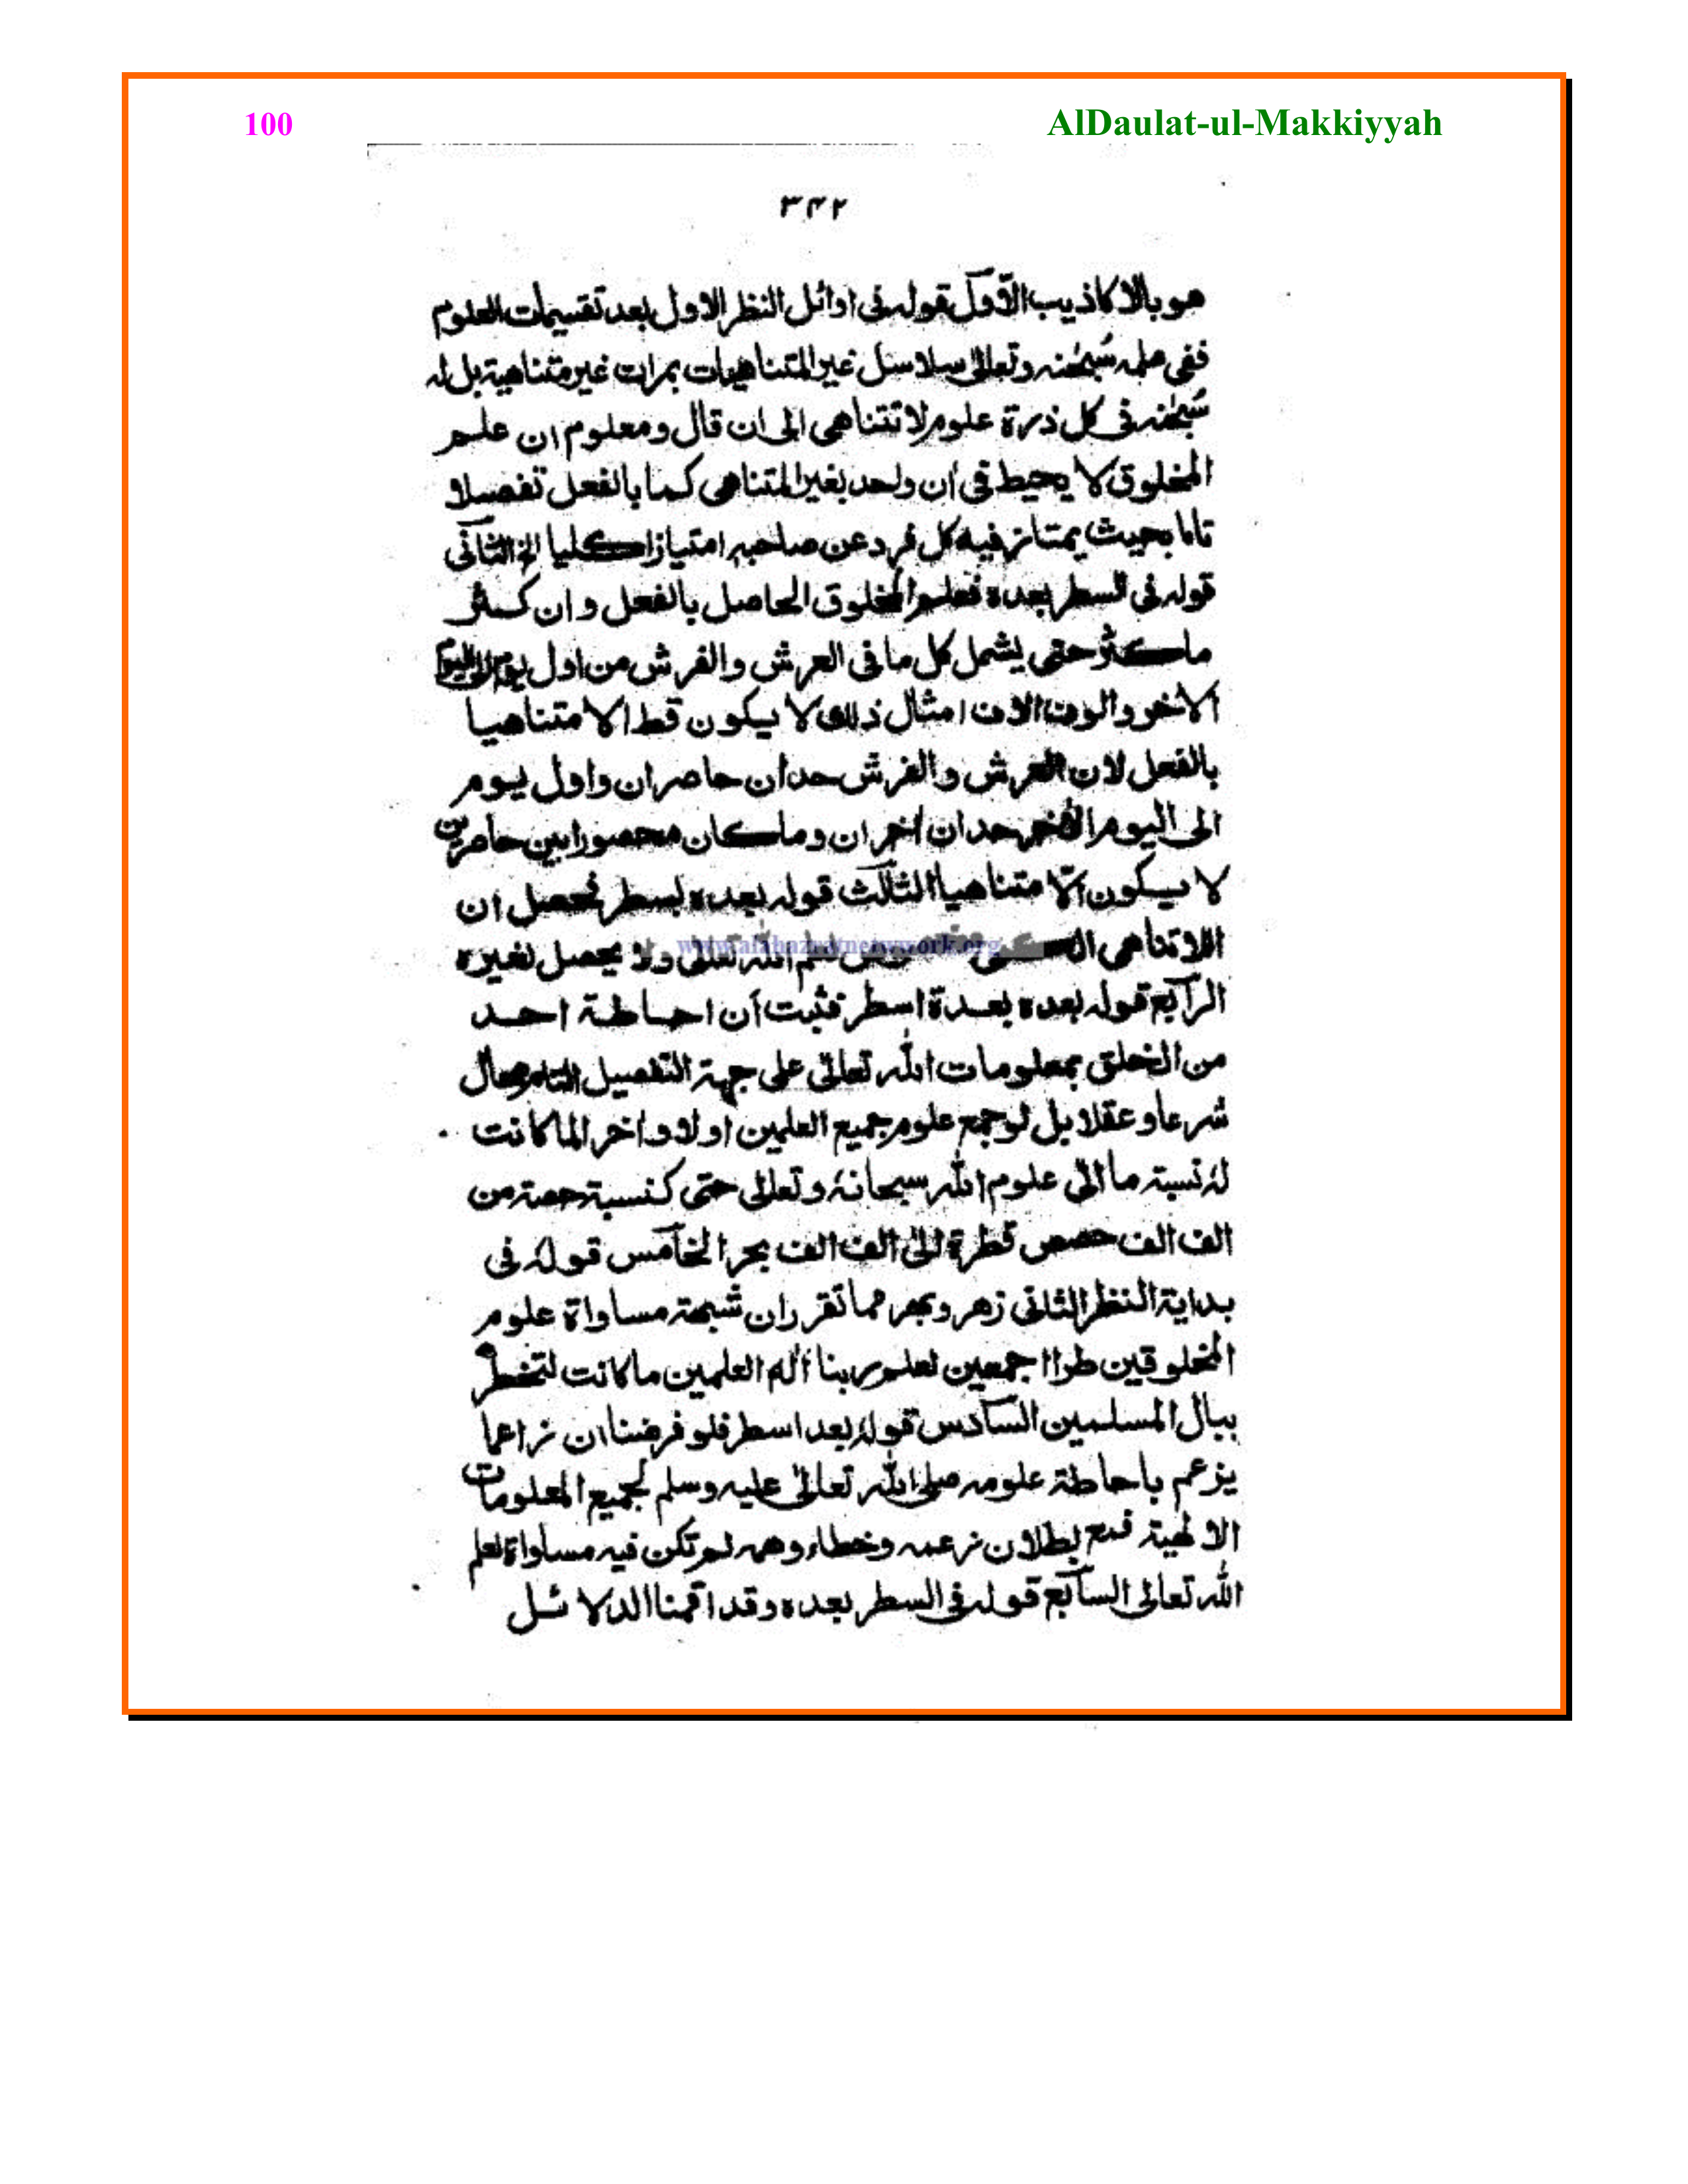 100
AlDaulat-ul-Makkiyyah
٣٤٢
هو بالاكاذيب الاول قوله فى اوائل النظر الاول بعد تقسيمات العلوم
ففى علمه سُبحٰنه وتعالى سلاسل غير المتناهيات بمرات غير متناهية بل له
سُبحٰنه فى كل ذرة علوم لا تتناهى الى ان قال ومعلوم ان علم
المخلوق لا يحيط فى اٰن واحد بغير المتناهى كما بالفعل تفصيلا
تاما بحيث يمتاز فيه كل فرد عن صاحبه امتيازا كليا الخ الثانى
قوله فى السطر بعده فعلم المخلوق الحاصل بالفعل وان كثر
ما كثر حتى يشمل كل ما فى العرش والفرش من اول يوم الى اليوم
الاٰخر والوف الاف امثال ذلك لا يكون قط الا متناهيا
بالفعل لان العرش والفرش حدان حاصران واول يوم
الى اليوم الاٰخر حدان اٰخران وما كان محصورا بين حاصرين
لا يكون الّا متناهيا الثالث قوله بعده بسطر فحصل ان
اللاتناهى علم الله تعالى ولا يحصل لغيره
www.alahazratnetwork.org
الرابع قوله بعده بعدة اسطر فثبت اَن احاطة احد
من الخلق بمعلومات اللّٰه تعالىٰ على جهة التفصيل التام محال
شرعا وعقلا بل لو جمع علوم جميع العٰلمين اولا واٰخر الما كانت
لهٗ نسبة ما الىٰ علوم اللّٰه سبحانهٗ وتعالى حتى كنسبة حصة من
الف الف حصص قطرة الىٰ الف الف بحر الخامس قولهٗ فى
بداية النظر الثانى زهر وبهر مما تقرر ان شبهة مساواة علوم
المخلوقين طرا اجمعين لعلوم ربنا اِلٰه العٰلمين ما كانت لتخطر
ببال المسلمين السادس قولهٗ بعد اسطر فلو فرضنا ان زاعما
يزعم باحاطة علومه صلى اللّٰه تعالىٰ عليه وسلم لجميع المعلومات
الالٰهية فمع بطلان زعمه وخطاء وهمه لم تكن فيه مساواة لعلم
اللّٰه تعالى السابع قوله فى السطر بعده وقد اقمنا الدلائل